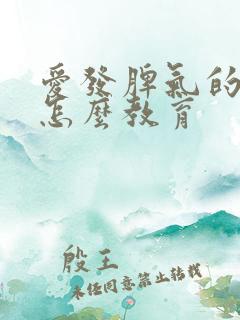 愛發脾氣的
怎麼教育
殷王
未經同意禁止轉載